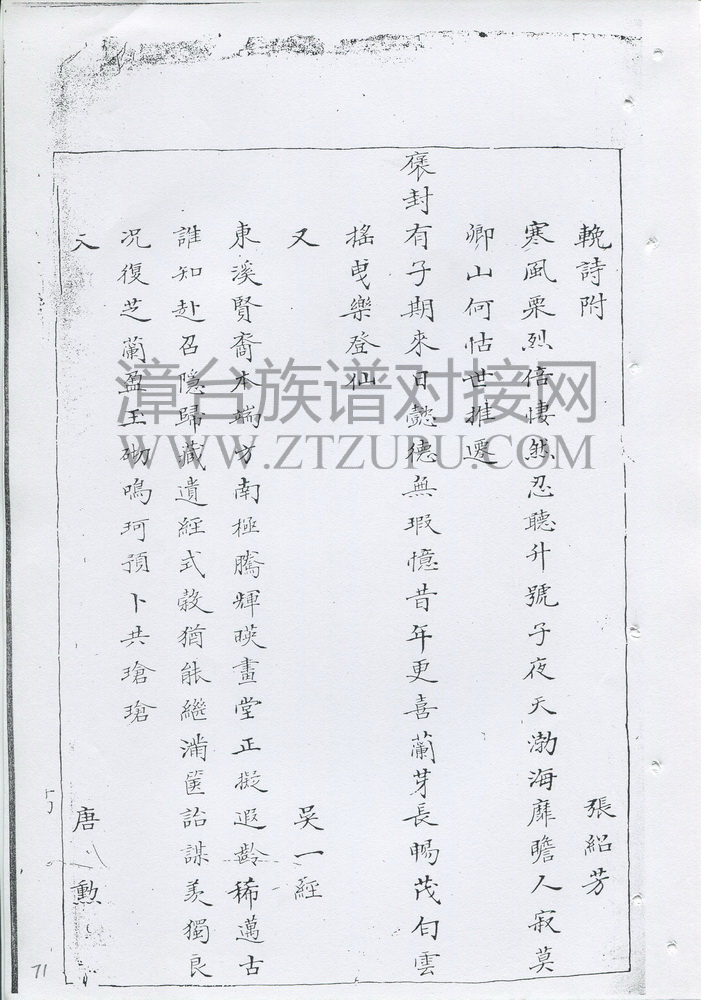 輓詩附 張紹芳
寒風栗烈倍悽然忍聽升號子夜天渤海靡瞻人寂莫
卿山何怙世推遷
褒封有子期來日懿德無瑕憶昔年更喜蘭芽長暢茂匄雲
搖曳樂登仙
又 吳一經
東溪賢裔本端方南極騰輝暎畫堂正擬遐齡稀邁古
誰知赴召隱歸藏遺經式榖猶能繼滿篋詒謀羡獨良
况復芝蘭盈玉砌鳴珂預卜共瑲瑲
又 唐勳
71
漳台族谱对接网
WWW.ZTZUPU.COM